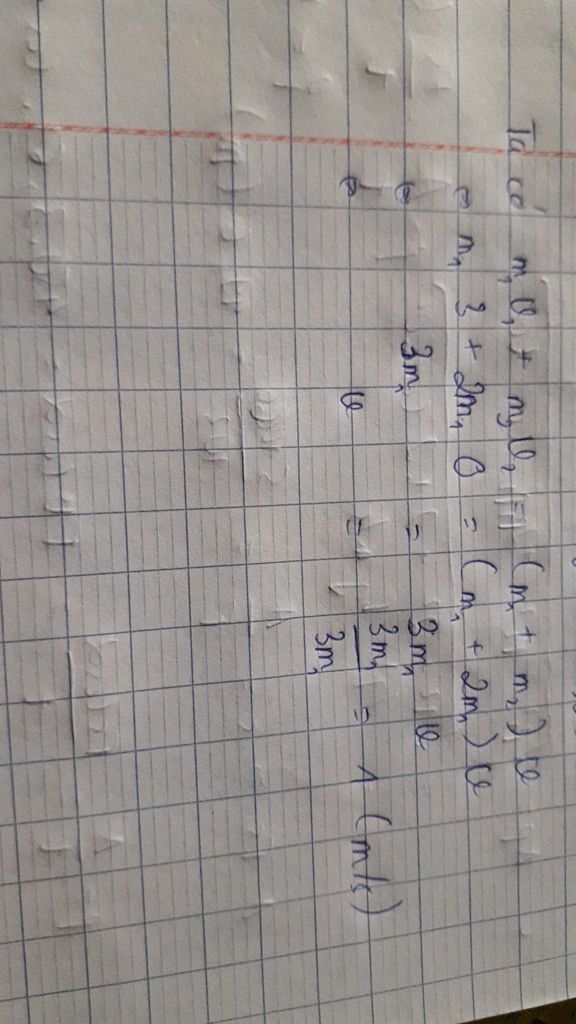 Ta có m₁v₁ + m₂v₂ = (m₁ + m₂)v
⇔ m₁ 3 + 2m₁ 0 = (m₁ + 2m₁)v
⇔ 3m₁ = 3m₁ v
⇔ v = 3m₁/3m₁ = 1 (m/s)